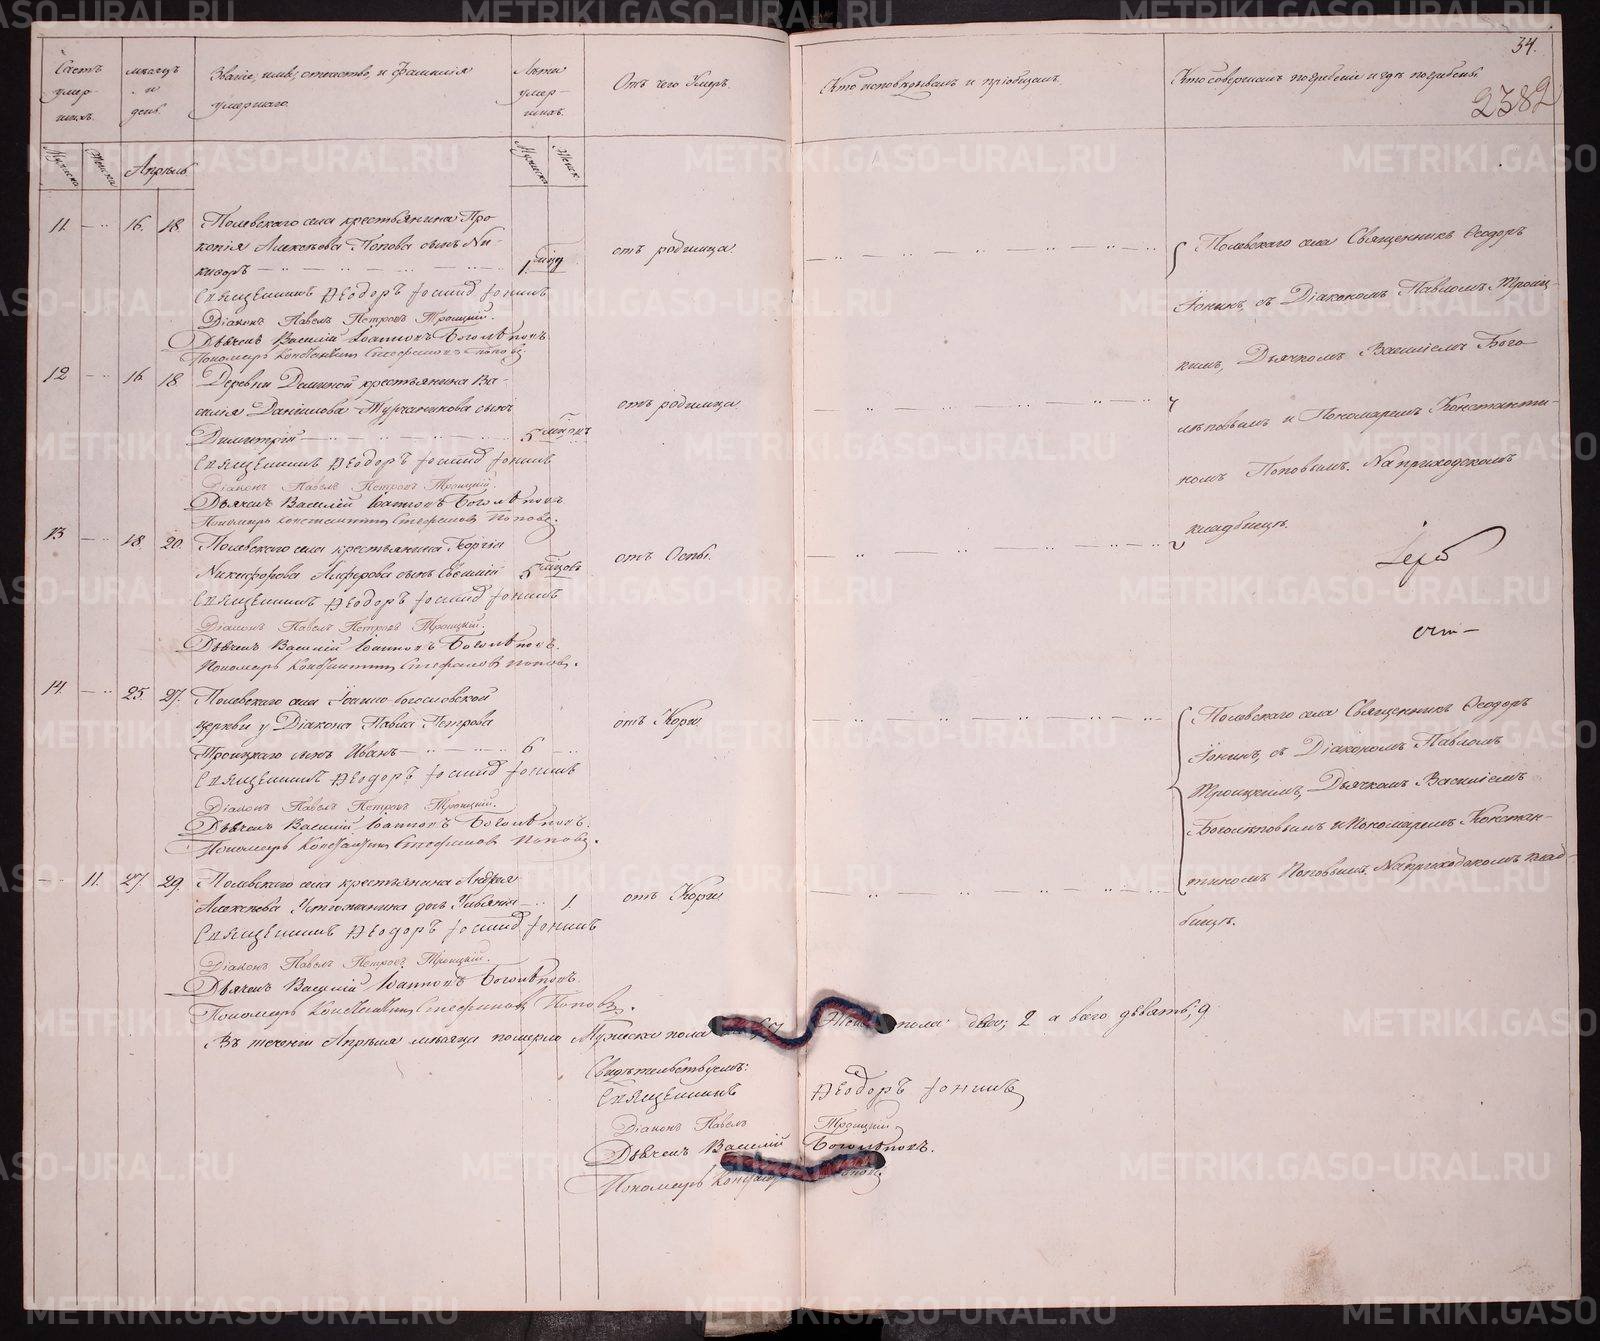 34.
2382
Счетъ умер-шихъ.
Мѣсяцъ и день.
Званіе, имя, отчество, и фамилія умершаго.
Лѣта умер-шихъ.
Отъ чего Умеръ.
Кто исповѣдывалъ и пріобщалъ.
Кто совершалъ погребеніе и гдѣ погребены.
Мужеска
Женска
Апрѣль
Мужеска
Женск.
11. 16. 18. Полевскаго села крестьянина Про-
копія Алексѣева Попова сынъ Ни-
каноръ 1. мѣц
отъ родимца.
Священникъ Ѳеодоръ Іонинъ
Діаконъ Павелъ Петровъ Троицкій.
Дьячекъ Василій Іоанновъ Боголѣповъ.
Пономарь Константинъ Стефановъ Поповъ.
12 16. 18 Деревни Деминой крестьянина Ва-
силія Даніилова Турчанинова сынъ
Димитрій 5 мѣцовъ
отъ родимца
Священникъ Ѳеодоръ Іонинъ
Діаконъ Павелъ Петровъ Троицкій.
Дьячекъ Василій Іоанновъ Боголѣповъ
Пономарь Константинъ Стефановъ Поповъ.
13 18. 20. Полевскаго села крестьянина Георгія
Никифорова Алферова сынъ Евсигній 5 мѣцовъ
отъ Оспы.
Священникъ Ѳеодоръ Іонинъ
Діаконъ Павелъ Петровъ Троицкій.
Дьячекъ Василій Іоанновъ Боголѣповъ.
Пономарь Константинъ Стефановъ Поповъ.
Полевскаго села Священникъ Ѳеодоръ
Іонинъ, съ Діакономъ Павломъ Троиц-
кимъ, Дьячкомъ Василіемъ Бого-
лѣповымъ и Пономаремъ Константи-
номъ Поповымъ. На приходскомъ
кладбищѣ.
14. 25. 27. Полевскаго села Іоанно-богословской
церкви у Діакона Павла Петрова
Троицкаго сынъ Иванъ 6
отъ Кори
Священникъ Ѳеодоръ Іонинъ
Діаконъ Павелъ Петровъ Троицкій.
Дьячекъ Василій Іоанновъ Боголѣповъ.
Пономарь Константинъ Стефановъ Поповъ.
11. 27. 29. Полевскаго села крестьянина Андрея
Алексѣева Устюжанина дочь Уліянія 1.
отъ Кори
Священникъ Ѳеодоръ Іонинъ
Діаконъ Павелъ Петровъ Троицкій.
Дьячекъ Василій Іоанновъ Боголѣповъ.
Пономарь Константинъ Стефановъ Поповъ.
Полевскаго села Священникъ Ѳеодоръ
Іонинъ, съ Діакономъ Павломъ
Троицкимъ, Дьячкомъ Василіемъ
Боголѣповымъ и Пономаремъ Констан-
тиномъ Поповымъ. На приходскомъ клад-
бищѣ.
Въ теченіи Апрѣля мѣсяца померло Мужеска пола 7 Женска пола двѣ; 2 а всего девять; 9
Свидѣтельствуемъ:
Священникъ Ѳеодоръ Іонинъ
Діаконъ Павелъ Троицкій
Дьячекъ Василій Боголѣповъ.
Пономарь Поповъ
METRIKI.GASO-URAL.RU